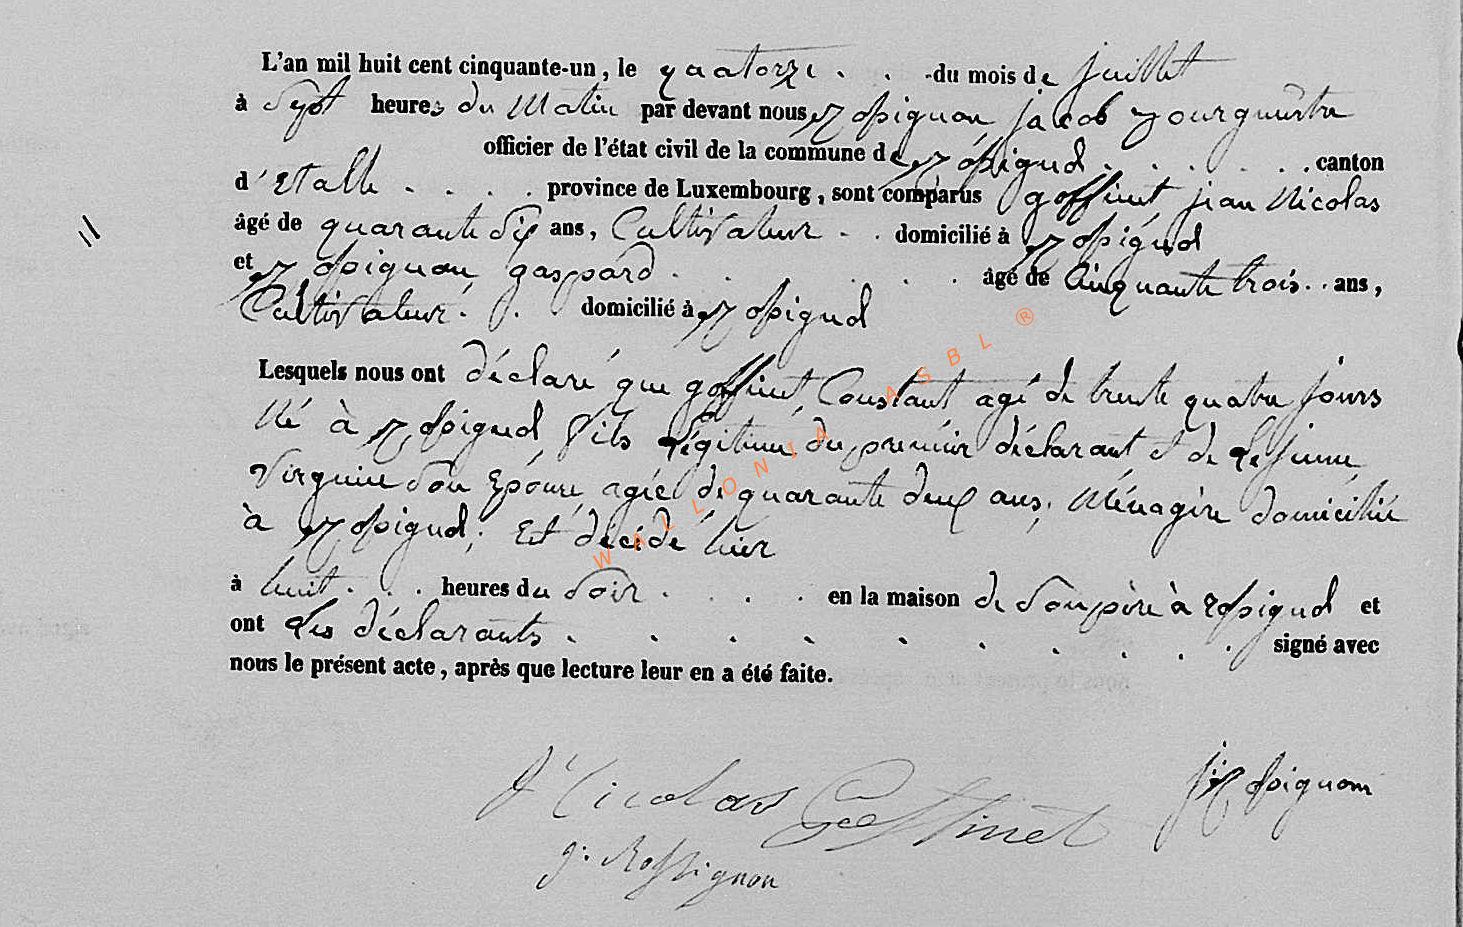 L'an mil huit cent cinquante-un, le quatorze . . . du mois de juillet
à Sept heures du Matin par devant nous Rossignon jacob Bourguête
officier de l'état civil de la commune de Rossignol . . . . . . canton
d'Etalle . . . . province de Luxembourg, sont comparus goffinet jean Nicolas
âgé de quarante Six ans, Cultivateur . . domicilié à Rossignol
et Rossignon gaspard . . . . . . âgé de Cinquante trois . . ans,
Cultivateur . . domicilié à Rossignol
Lesquels nous ont déclaré que goffinet Constant agé de trente quatre jours
Né à Rossignol fils Légitime du premier déclarant et de LeJeune
Virginie Son Epouse, agée de quarante deux ans, Ménagère domiciliée
à Rossignol; Est décédé hier
à huit . . . heures du Soir . . . . en la maison de Son père à Rossignol et
ont Les déclarants . . . . . . . . . signé avec
nous le présent acte, après que lecture leur en a été faite.
WALLONIA ASBL ®
11
Nicolas Goffinet
J: Rossignon
g: Rossignon